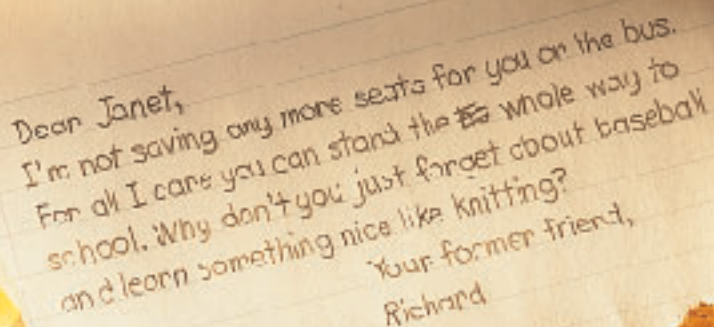 Dear Janet,
I'm not saving any more seats for you on the bus.
For all I care you can stand the whole way to
school. Why don't you just forget about baseball
and learn something nice like knitting?
Your former friend,
Richard